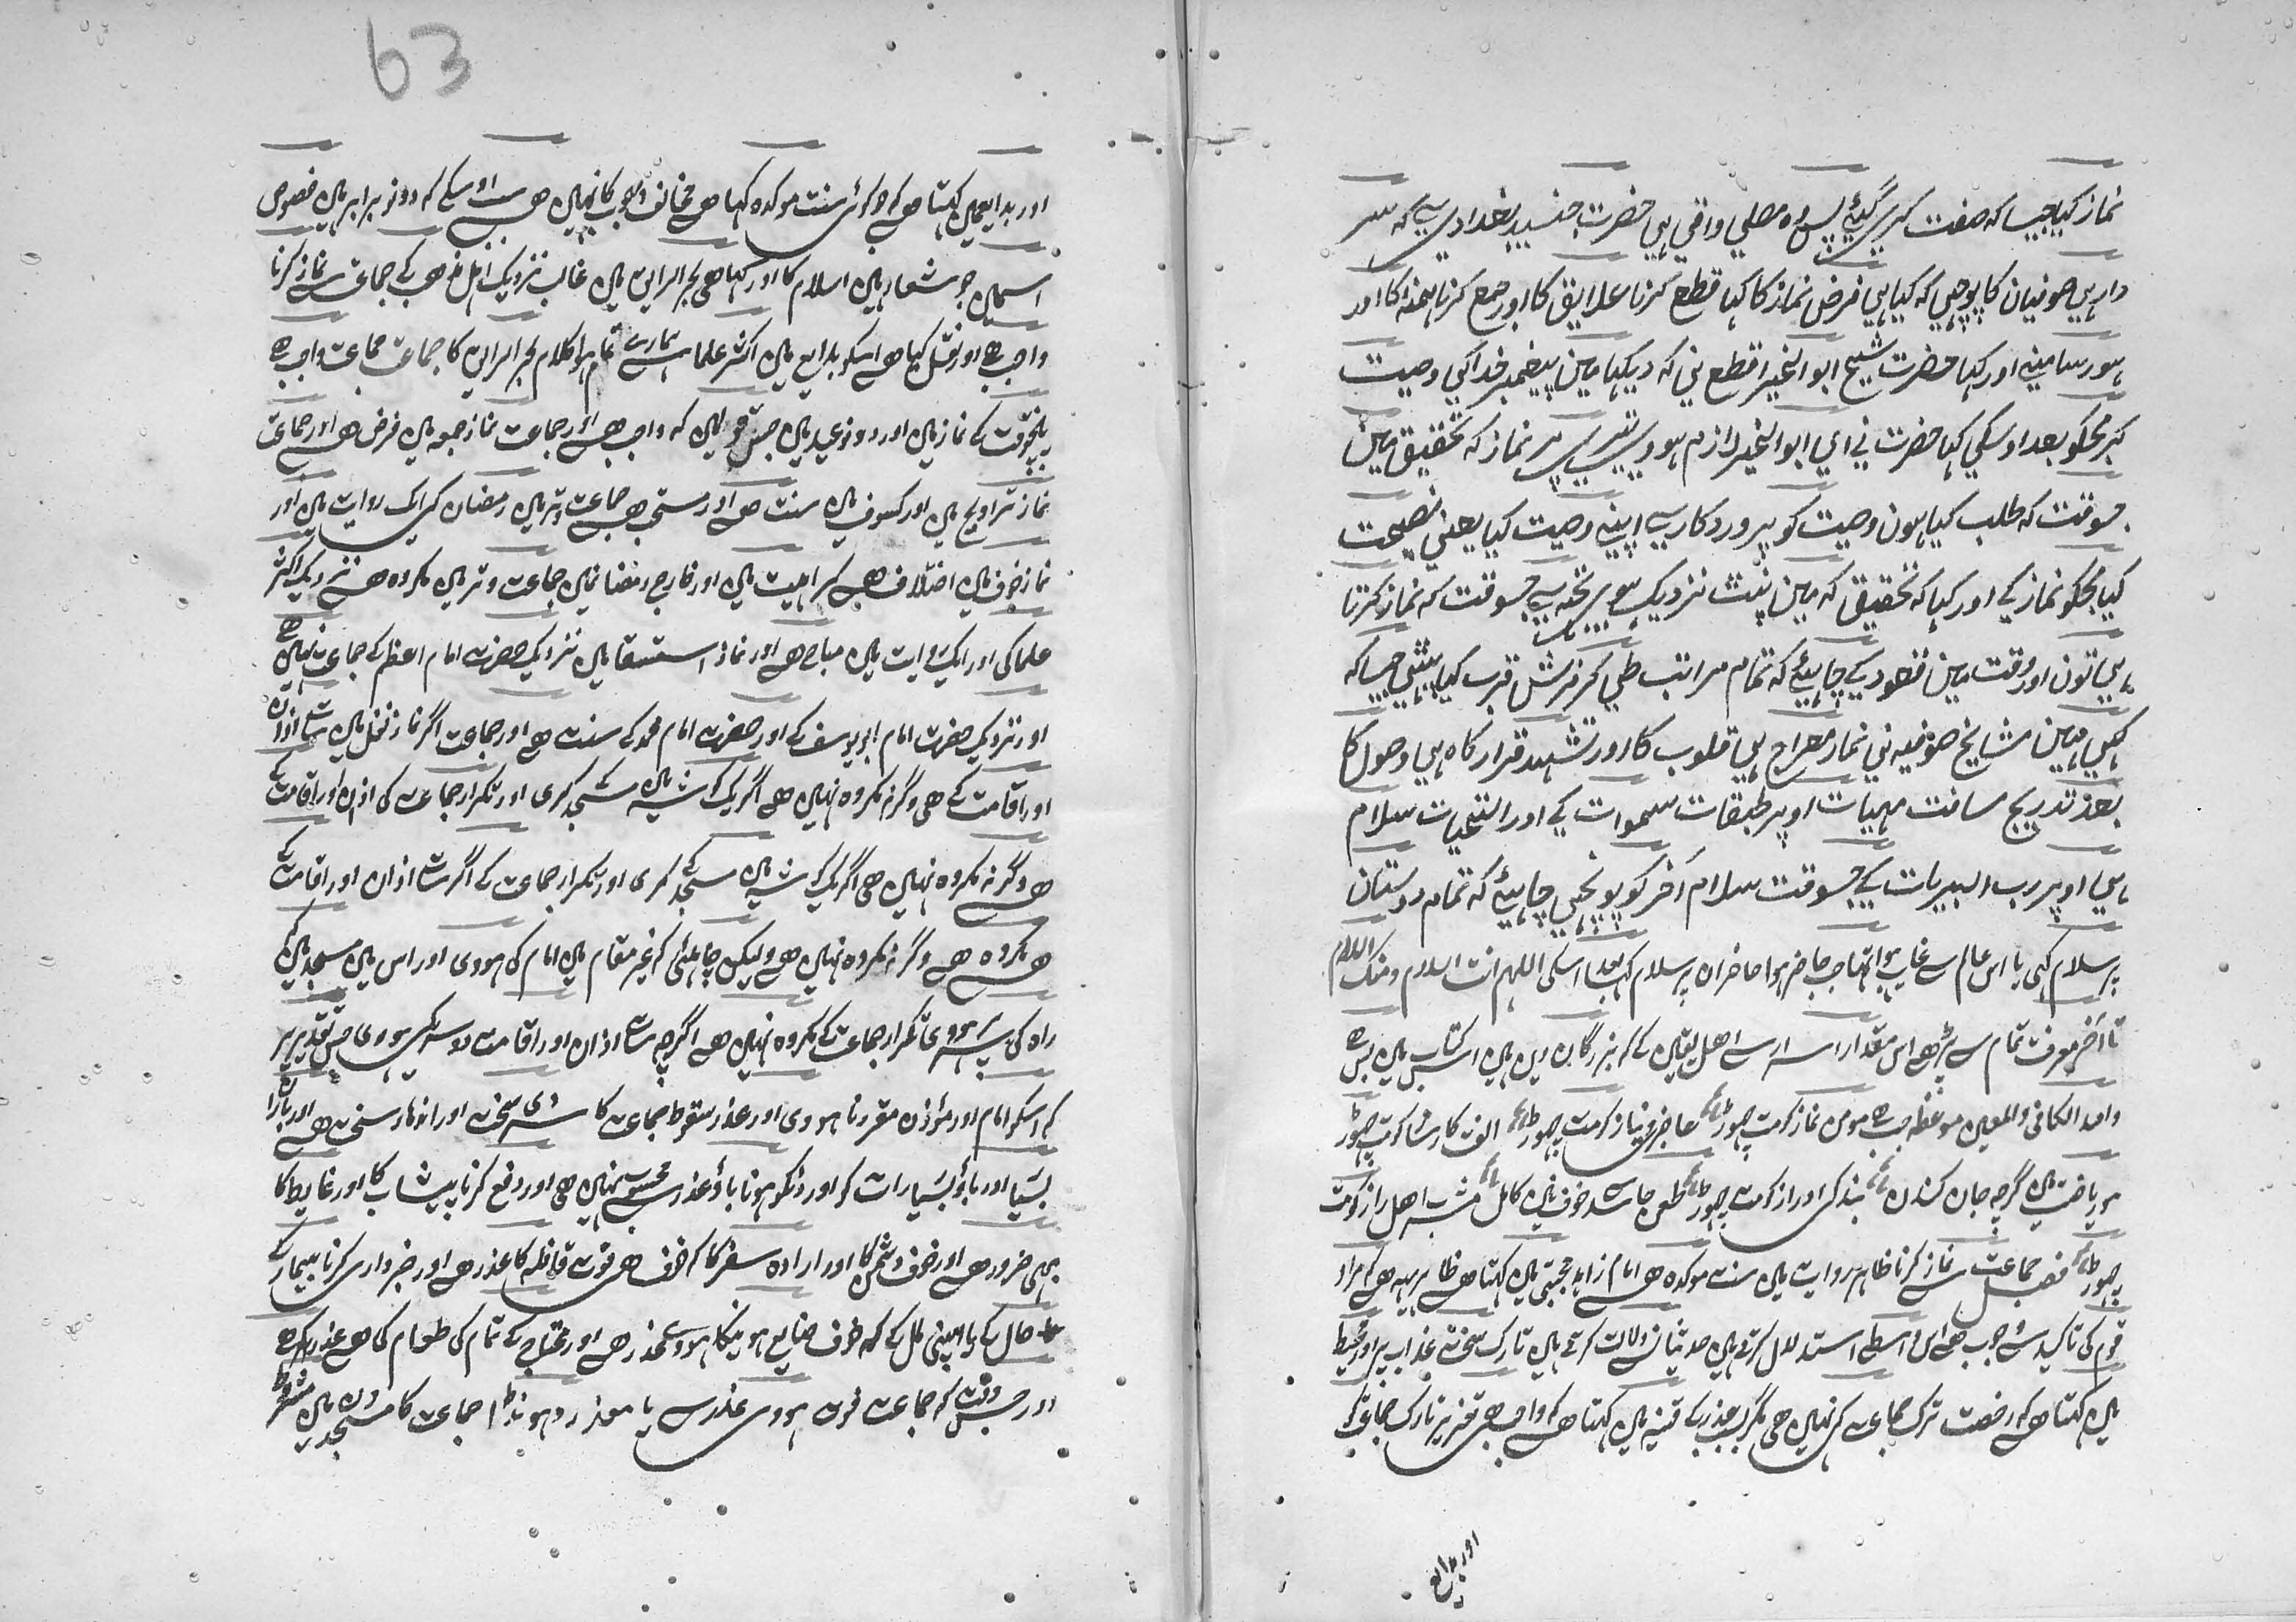 نماز کیا جیسا کہ صفت کری گئے پس وہ مصلی واقی ہی حضرت جنید بغدادی سے کہ سر
دار ہی صوفیان کا پوچھی کہ کیا ہی فرض نماز کا کہا قطع کرنا علایق کا اور جمع کرنا ہمتہ کا اور
ہور سامنے اور کہا حضرت شیخ ابو الخیر اقطع نی کہ دیکہا مین پیغمبر خدا کی وصیت
کر مجکو بعد اوسکی کہا حضرت نی ای ابو الخیر لازم ہووی تیری پر نماز کہ تحقیق مین
جسوقت کہ طلب کیا ہون وصیت کو پروردکار سے اپنے وصیت کیا یعنی نصیحت
کیا مجکو نماز کے اور کہا کہ تحقیق کہ مین نزدیک تجہ سے جسوقت کہ نماز کرتا
ہی تون اور وقت مین قعود کے چاہیئے کہ تمام مراتب طی کر فرش قرب کیا بیٹھی جیسا کہ
کہی ہین مشایخ صوفیہ نی نماز معراج ہی قلوب کا اور تشہد قرار کاہ ہی وصول کا
بعد تدریج مسافت مہیات اوپر طبقات سموات کے اور التحیات سلام
ہی اوپر رب البریات کے جسوقت سلام آخر کو پونچی چاہیئے کہ تمام دوستان
پر سلام کہی یا اس عالم سے غایب ہوا تہا جب حاضر ہوا حاضران پر سلام کہا بعد اسکی اللہم انت السلام ومنک السلام
تا آخر معرفت تمام سے پڑھے اس مقدار اسرار سے اھل یقین کے کہ بزرگان دین ہین اس کتاب مین بس ھے
واللہ الکافی والمعین موعظہ حب ھے مومن نماز کومت چھوڑ عاجزی نیاز کومت چھوڑ الف کا رشتا کومت چھوڑ
ریاضت مین گرچہ جان کندن بندکی اور از کومت چھوڑ طمع جا سے خوف مین کامل اھل راز کومت
چھوڑ فصل جماعت سے نماز کرنا ظاہر روایت مین سنت موکدہ ھے امام زاہد مجتبی مین کہتا ھے ظاہر یہہ ھے کہ مراد
قوم کی تاکید سے وجوب ھے اس واسطے استدلال کرتے ہین دلالت کرتے ہین تارک سخت عذاب پر اور محیط
مین کہتا ھے کہ رخصت ترک جماعت کی نہین ھے مگر بسبب عذر کے قنیہ مین کہتا ھے کہ واجب ھے تعزیر تارک جماعت کو
اور بدایع
63
اور بدایعمین کہتا ھے کہ جو کوئی سنت موکدہ کہا ھے مخالف واجب کا نہین ھے اوسکے کہ دونو برابر ہین خصوص
اسمین جو شعار ہین اسلام کا اور کہا ھے بحر الرایق مین غالب نزدیک اہل مذھب کے جماعت سے نماز کرنا
واجب ھے اور نقل کیا ھے اسکو بدایع مین اکثر علما سے ہمارے تمام ہوا کلام بحر الرایق کا جماعت جماعت واجب ھے
پنجوقت کے نماز مین اور دونو عید مین جس قول مین کہ واجب ھے اور جماعت نماز جمعہ مین فرض ھے اور جماعت
نماز تراویح مین اور کسوف مین سنت ھے اور مستحب ھے جماعت وتر مین رمضان کی ایک روایت مین اور
نماز خوف مین اختلاف ھے کراہیت مین اور خارج رمضانمین جماعت وتر مین مکروہ ھے نزدیک اکثر
علما کی اور ایک روایت مین مباح ھے اور نماز استسقا مین نزدیک حضرت امام اعظم کے جماعت نہین ھے
اور نزدیک حضرت امام ابو یوسف کے اور حضرت امام محمد کے سنت ھے اور جماعت اگر نماز نفل مین سات اذان
اور اقامت کے ھی وگرنہ مکروہ نہین ھے اگر یک گوشہ مین مسجد کے کری اور تکرار جماعت کی اذان اور اقامت کے
ھے وگرنہ مکروہ نہین ھے اگر یک گوشہ مین مسجد کے کری اور تکرار جماعت کے اگر سات اذان اور اقامت کے
ھے مکروہ ھے وگرنہ مکروہ نہین ھے ولیکن چاہئے کہ غیر مقام مین امام کی ہووی اور اس مین مسجد مین کے
راہ کی پر ہووی تکرار جماعت کے مکروہ نہین ھے اگرچہ سات اذان اور اقامت دوسری کی ہووی جس تقدیر پر
کہ اسکو امام اور مؤذن مقرر نا ہووی اور عذر سقوط جماعت کا سردی سخت اور اندہار سخت ھے اور باران
بسیا اور باؤ بسیا رات کو اور دنکو ہونا باؤ عذر محسوب نہین ھے اور دفع کرنا پیشاب کا اور غایط کا
بہی ضرور ھے اور خوف دشمن کا اور ارادہ سفر کا کہ خوف ھی فوت قافلہ کا عذر ھے اور خبرداری کرنا بیمار کے
حال کے یا اپنی مال کے کہ خوف ضایع ہونیکا ہووی عذر ھے اور محتاج کے تمام کی طعام کی ھے عذر
اور جس وقت کہ جماعت فوت ہووی عذر سے یا معذور ہو جماعت کا مسجد مین